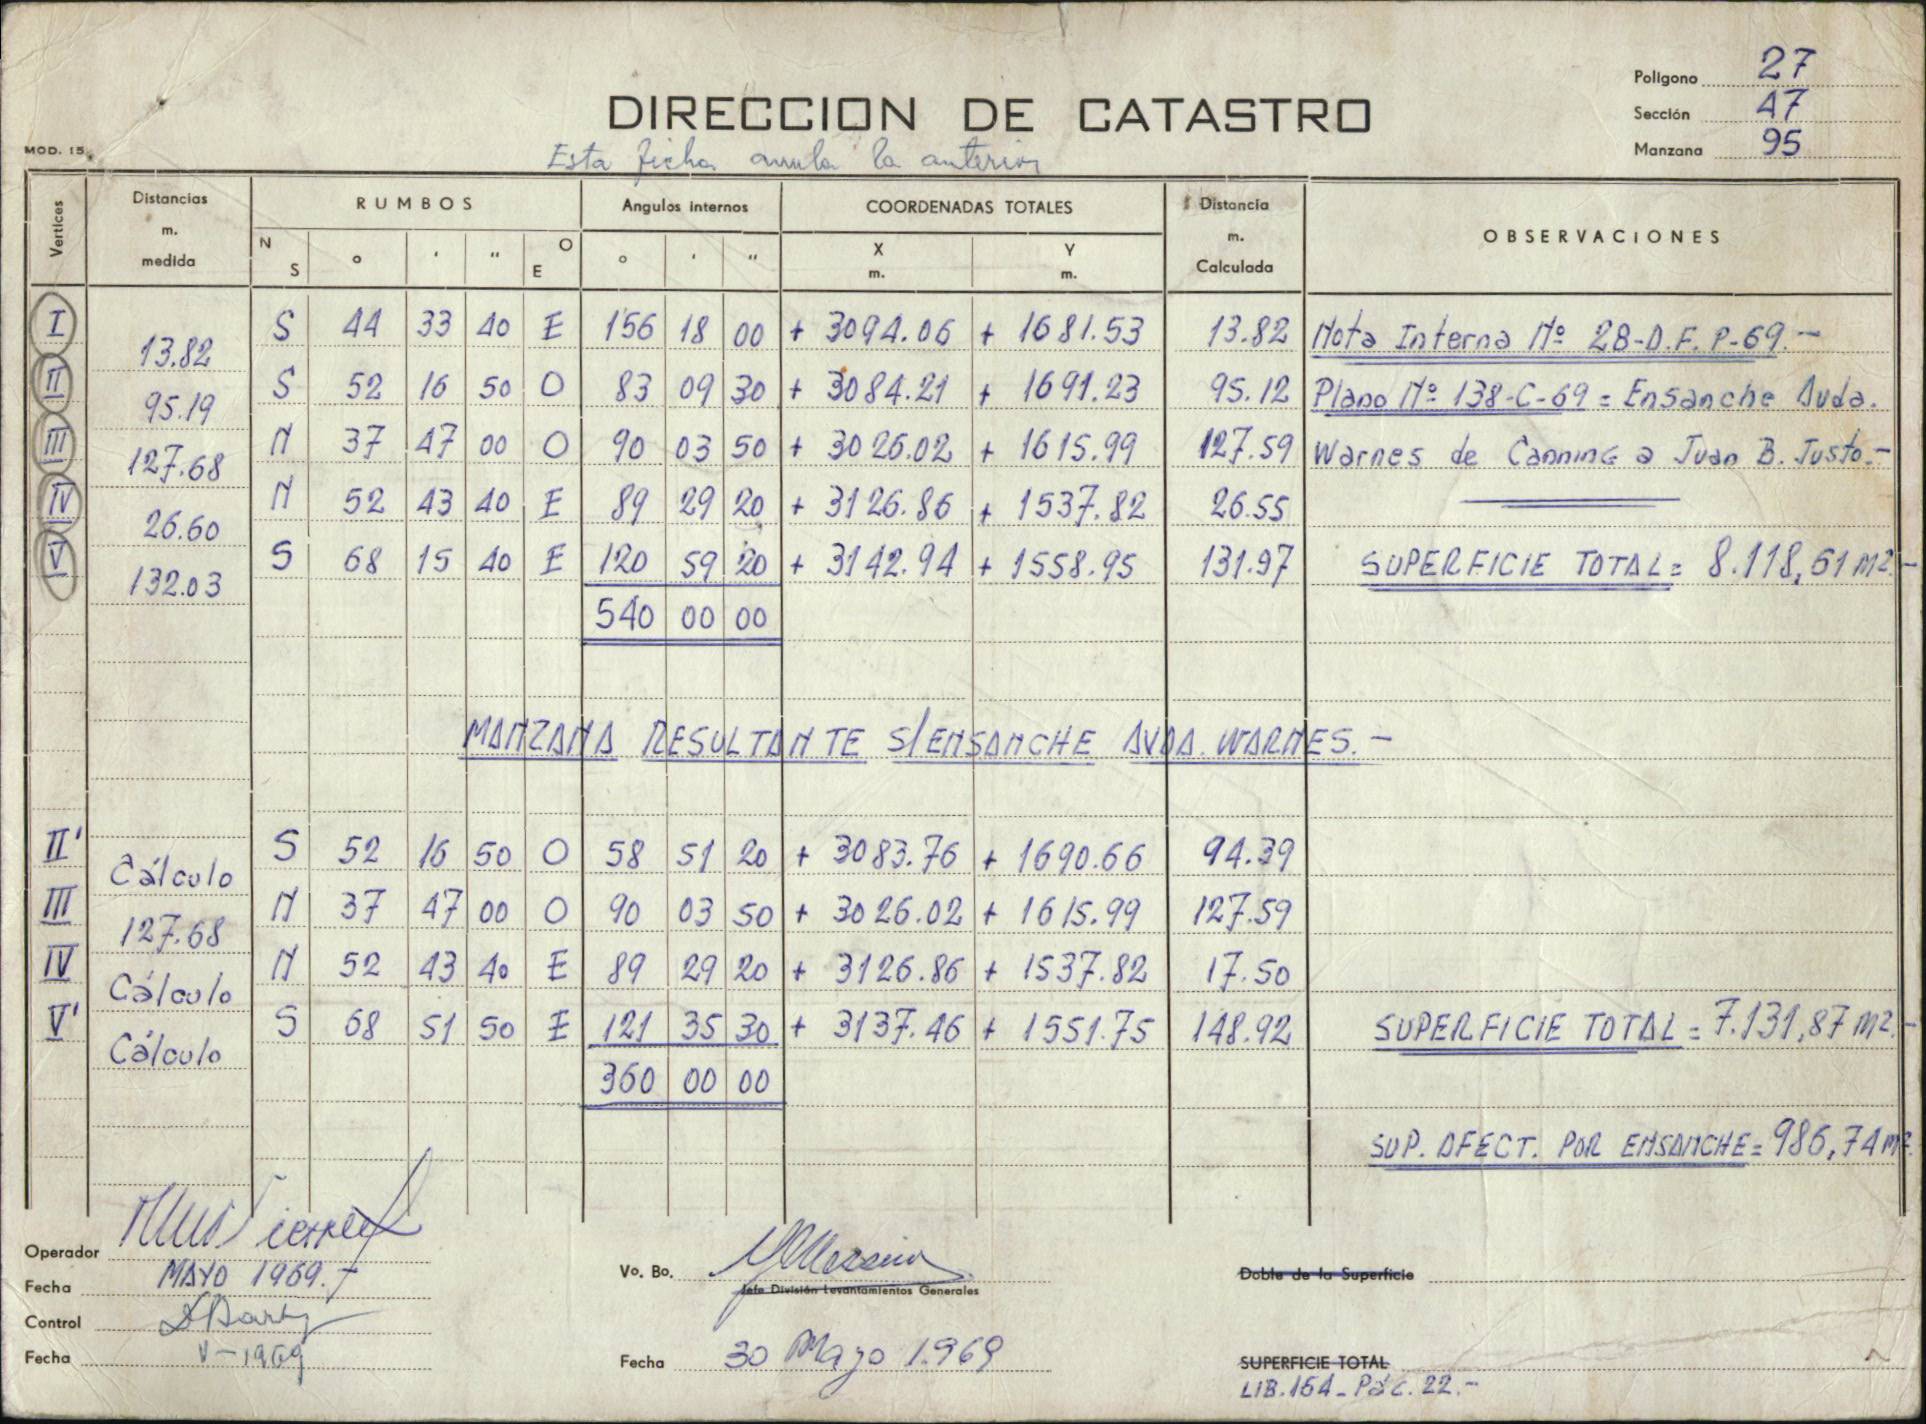 Polígono 27
DIRECCION DE CATASTRO
Sección 47
MOD. 15
Esta ficha anula la anterior
Manzana 95
Vertices Distancias m. medida RUMBOS Angulos internos COORDENADAS TOTALES Distancia m. Calculada OBSERVACIONES
N S o ' " O E o ' " X m. Y m.
I 13.82 S 44 33 40 E 156 18 00 + 3094.06 + 1681.53 13.82 Nota Interna Nº 28-D.F.P-69.-
II 95.19 S 52 16 50 O 83 09 30 + 3084.21 + 1691.23 95.12 Plano Nº 138-C-69 = Ensanche Avda.
III 127.68 N 37 47 00 O 90 03 50 + 3026.02 + 1615.99 127.59 Warnes de Canning a Juan B. Justo.-
IV 26.60 N 52 43 40 E 89 29 20 + 3126.86 + 1537.82 26.55
V 132.03 S 68 15 40 E 120 59 20 + 3142.94 + 1558.95 131.97 SUPERFICIE TOTAL = 8.118,61 m2.-
540 00 00
MANZANA RESULTANTE S/ENSANCHE AVDA. WARNES.-
II' Cálculo S 52 16 50 O 58 51 20 + 3083.76 + 1690.66 94.39
III 127.68 N 37 47 00 O 90 03 50 + 3026.02 + 1615.99 127.59
IV Cálculo N 52 43 40 E 89 29 20 + 3126.86 + 1537.82 17.50
V' Cálculo S 68 51 50 E 121 35 30 + 3137.46 + 1551.75 148.92 SUPERFICIE TOTAL = 7.131,87 m2.-
360 00 00
SUP. AFECT. POR ENSANCHE = 986,74 m2.
Operador
Vo. Bo.
Doble de la Superficie
Fecha MAYO 1969.-
Jefe División Levantamientos Generales
Control
Fecha V-1969
Fecha 30 Mayo 1.969
SUPERFICIE TOTAL
LIB. 164 - Pág. 22.-